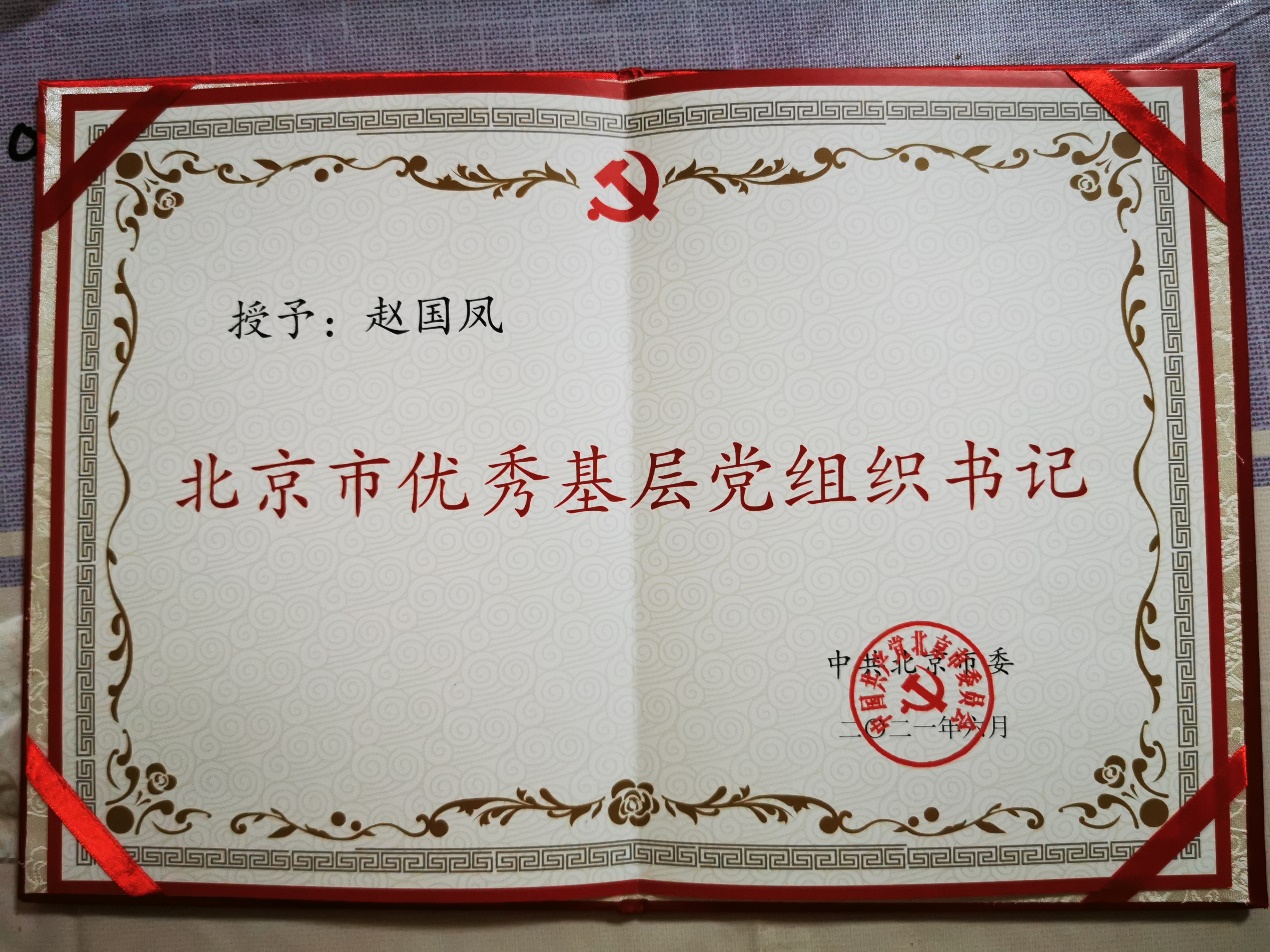 授予：赵国凤
北京市优秀基层党组织书记
中共北京市委
二〇二一年六月
中国共产党北京市委员会